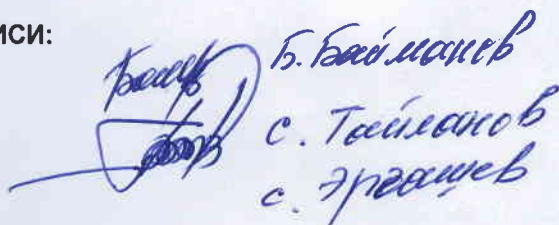 иси:
Б. Байманов
С. Тайланов
С. Эргашев